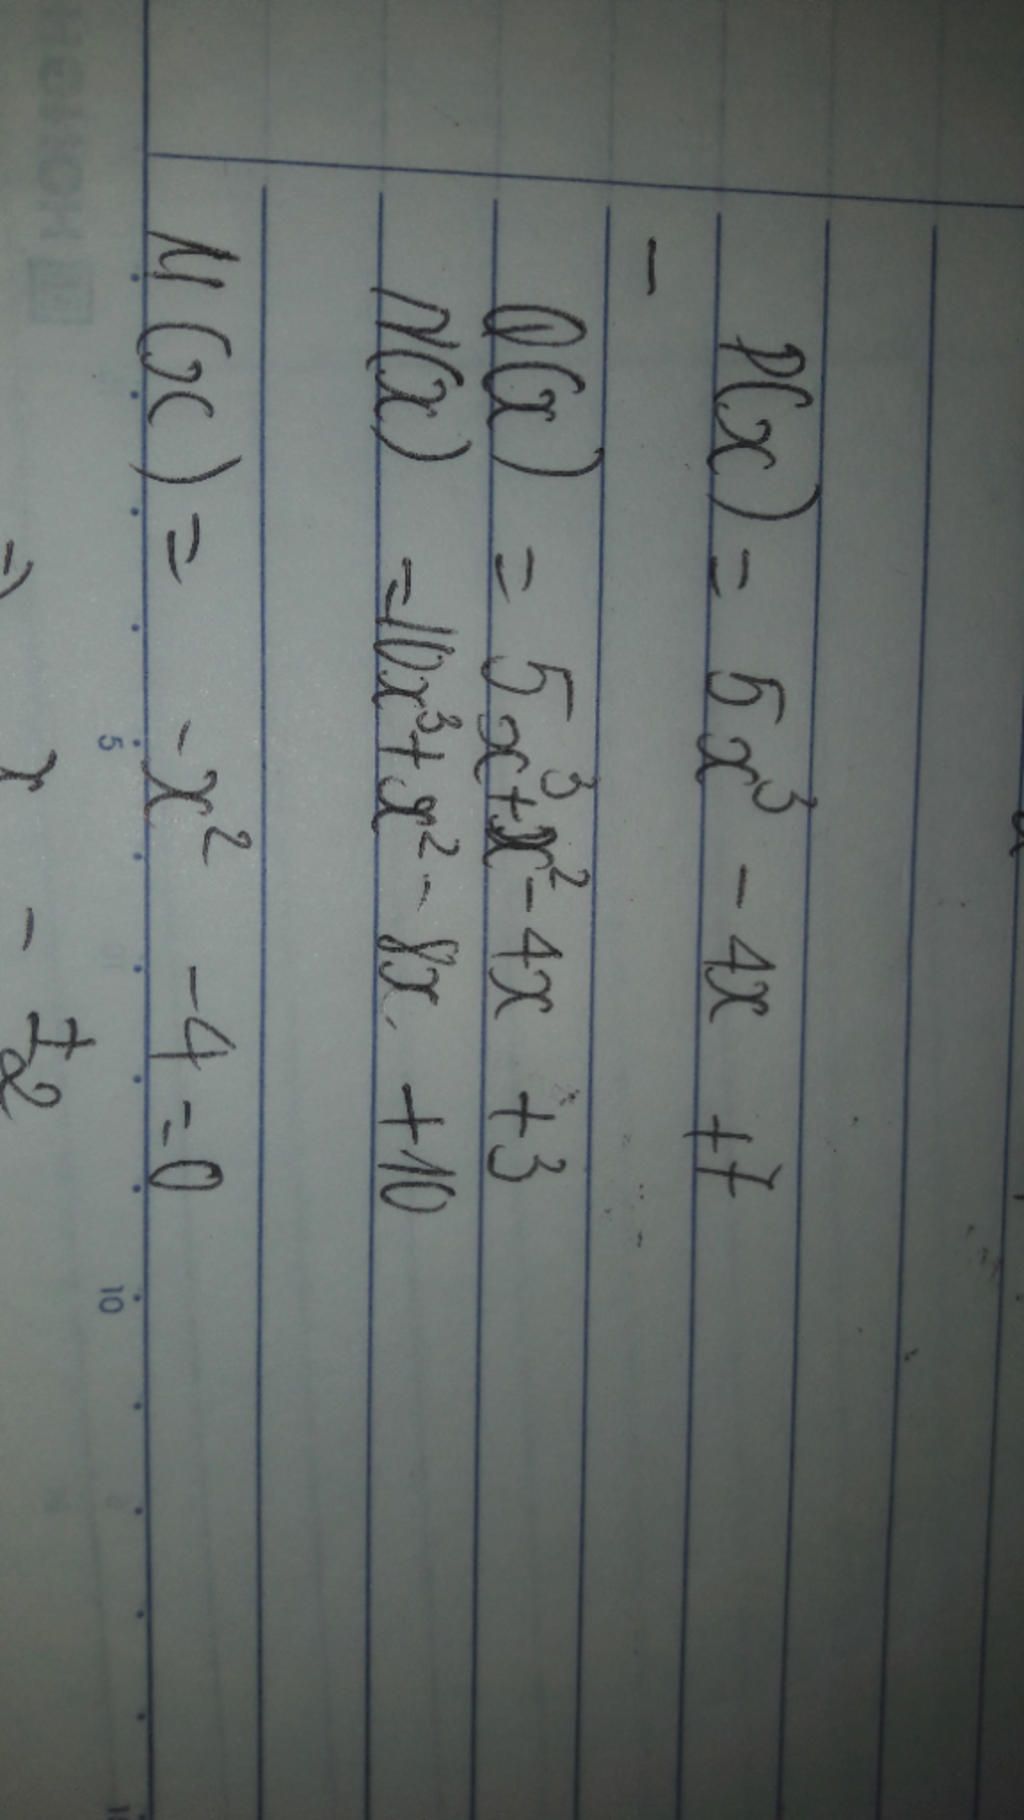 P(x) = 5x³ - 4x +7
-
Q(x) = 5x³+x²-4x +3
N(x) =10x³+x²-8x +10
M(x) = -x² -4=0
5 10
x - ±2